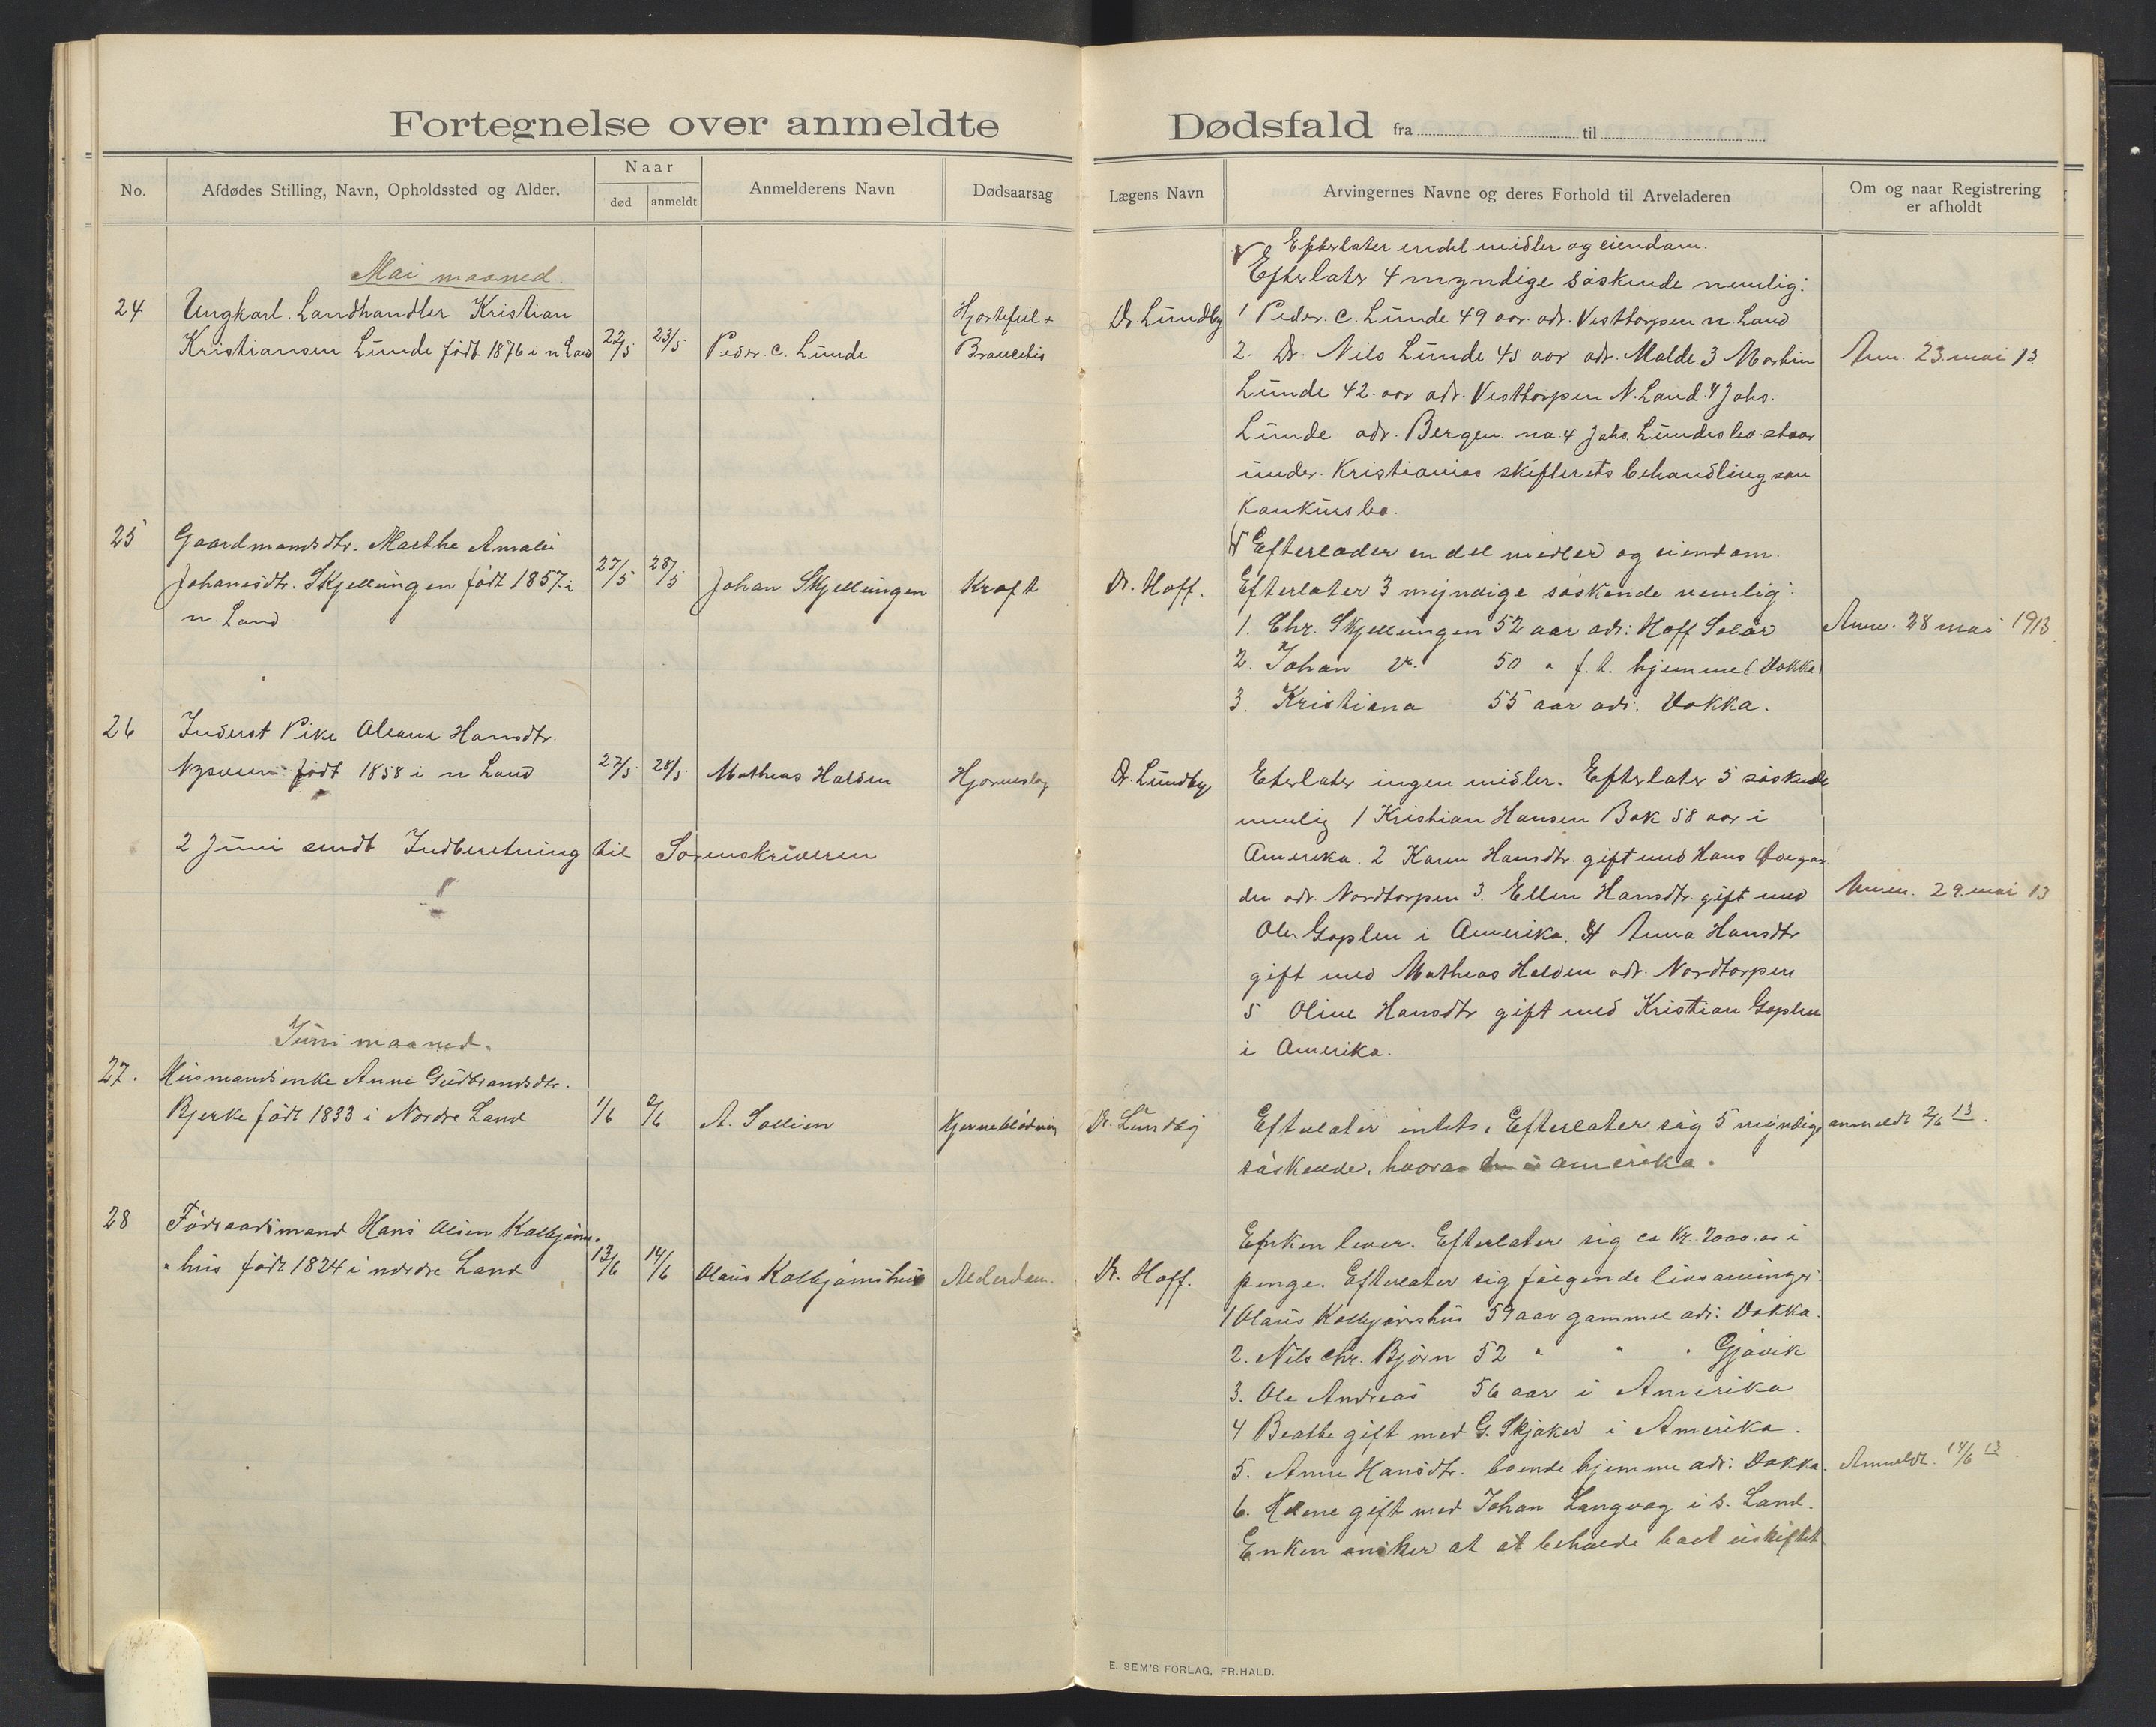 Fortegnelse over anmeldte Dødsfald fra til
No.
Afdødes Stilling, Navn, Opholdssted og Alder.
Naar
død
anmeldt
Anmelderens Navn
Dødsaarsag
Lægens Navn
Arvingernes Navne og deres Forhold til Arveladeren
Om og naar Registrering
er afholdt
Mai maaned.
24 Ungkarl. Landhandler Kristian
Kristiansen Lunde født 1876 i n Land 22/5 23/5 Peder. C. Lunde
Hjertefeil +
Dr. Lundby
Efterlater endel midler og eiendom.
Efterlater 4 myndige søskende nemlig:
1 Peder. C. Lunde 49 aar. adr. Vesttorpen n. Land
2. Dr. Nils Lunde 45 aar adr. Molde. 3 Martin
Lunde 42. aar adr. Vesttorpen N. Land. 4 Johs.
Lunde adr. Bergen. na. 4 Johs. Lundes bo staar
under. Kristianias skifterets behandling som
Konkursbo.
Anm. 23. mai 13
25 Gaardmandsdtr. Marthe Amalie
Johanesdtr. Skjellungen født 1857. i
n. Land
27/5 28/5 Johan Skjellungen Kræft
Dr. Hoff.
Efterlader en del midler og eiendom.
Efterlater 3 myndige søskende nemlig:
1. Chr. Skjellungen 52 aar adr: Hoff Solør
2. Johan 50 " f. t. hjemme (Dokka)
3. Kristiana 55 aar adr. Dokka.
Anm. 28 mai 1913
26 Inderst Pike Oleane Hansdtr.
født 1858 i n Land 27/5 28/5 Mathias Halden Hjerneslag
Dr. Lundby
2 Juni sendt Indberetning til Sorenskriveren
Eterlater ingen midler. Efterlater 5 søskende
nemlig 1 Kristian Hansen Bak 58 aar i
Amerika. 2 Karen Hansdtr. gift med Hans
den adr. Nordtorpen 3. Ellen Hansdtr. gift med
Ole Goplen i Amerika. 4 Anna Hansdtr
gift med Mathias Halden adr. Nordtorpen
5 Oline Hansdtr gift med Kristian Goplen
i Amerika.
Anm. 29. mai 13
Juni maaned.
27. Husmandsenke Anne Gudbrandsdtr.
Bjerke født 1833 i Nordre Land 1/6 2/6 A. Sollien Hjerneblødning
Dr. Lundby
Efterlater intet. Efterlater sig 5 myndige
søskende, hvorav en i amerika.
anmeldt 2/6 13.
28 Føderaadsmand Hans Olsen Kolbjørns-
hus født 1824 i nordre Land 13/6 14/6 Olaus Kolbjørnshus Alderdom.
Dr. Hoff.
Enken lever. Efterlater sig ca Kr. 2000.00 i
penge. Efterlater sig følgende livsarvinger:
1 Olaus Kolbjørnshus 59 aar gammel adr: Dokka.
2. Nils Chr. Bjørn 52 " " " Gjøvik
3. Ole Andreas 56 aar i Amerika
4 Beathe gift med G. Skjaker i Amerika.
5. Anne Hansdtr. boende hjemme adr: Dokka.
6. Helene gift med Johan Langvag i S. Land.
Enken ønsker at at beholde boet uskiftet
Anmeldt. 14/6 13.
E. SEM'S FORLAG, FR.HALD.